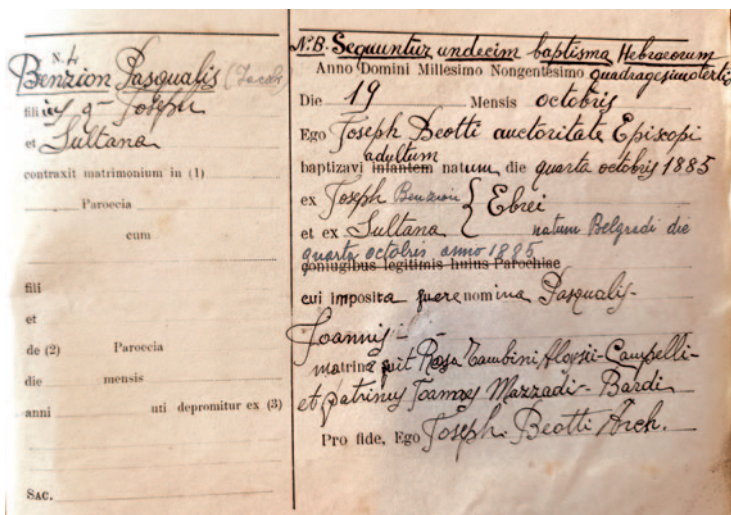 N. 4
Benzion Pasqualis (Jacob
filius q- Joseph
et Sultana
contraxit matrimonium in (1)
Paroecia
cum
fili
et
de (2) Paroecia
die mensis
anni uti depromitur ex (3)
SAC.
N.B. Sequuntur undecim baptisma Hebraeorum
Anno Domini Millesimo Nongentesimo quadragesimotertio
Die 19 Mensis octobris
Ego Joseph Beotti auctoritate Episcopi
adultum
baptizavi infantem natum die quarta octobris 1885
ex Joseph Benzion Ebrei
et ex Sultana natum Belgradi die
quarta octobris anno 1885
coniugibus legitimis huius Parochiae
cui imposita fuere nomina Pasqualis-
Joannis
matrina fuit Rosa Tambini Aloysii-Campelli-
et patrinus Joannes Mazzadi- Bardi
Pro fide, Ego Joseph. Beotti Arch.